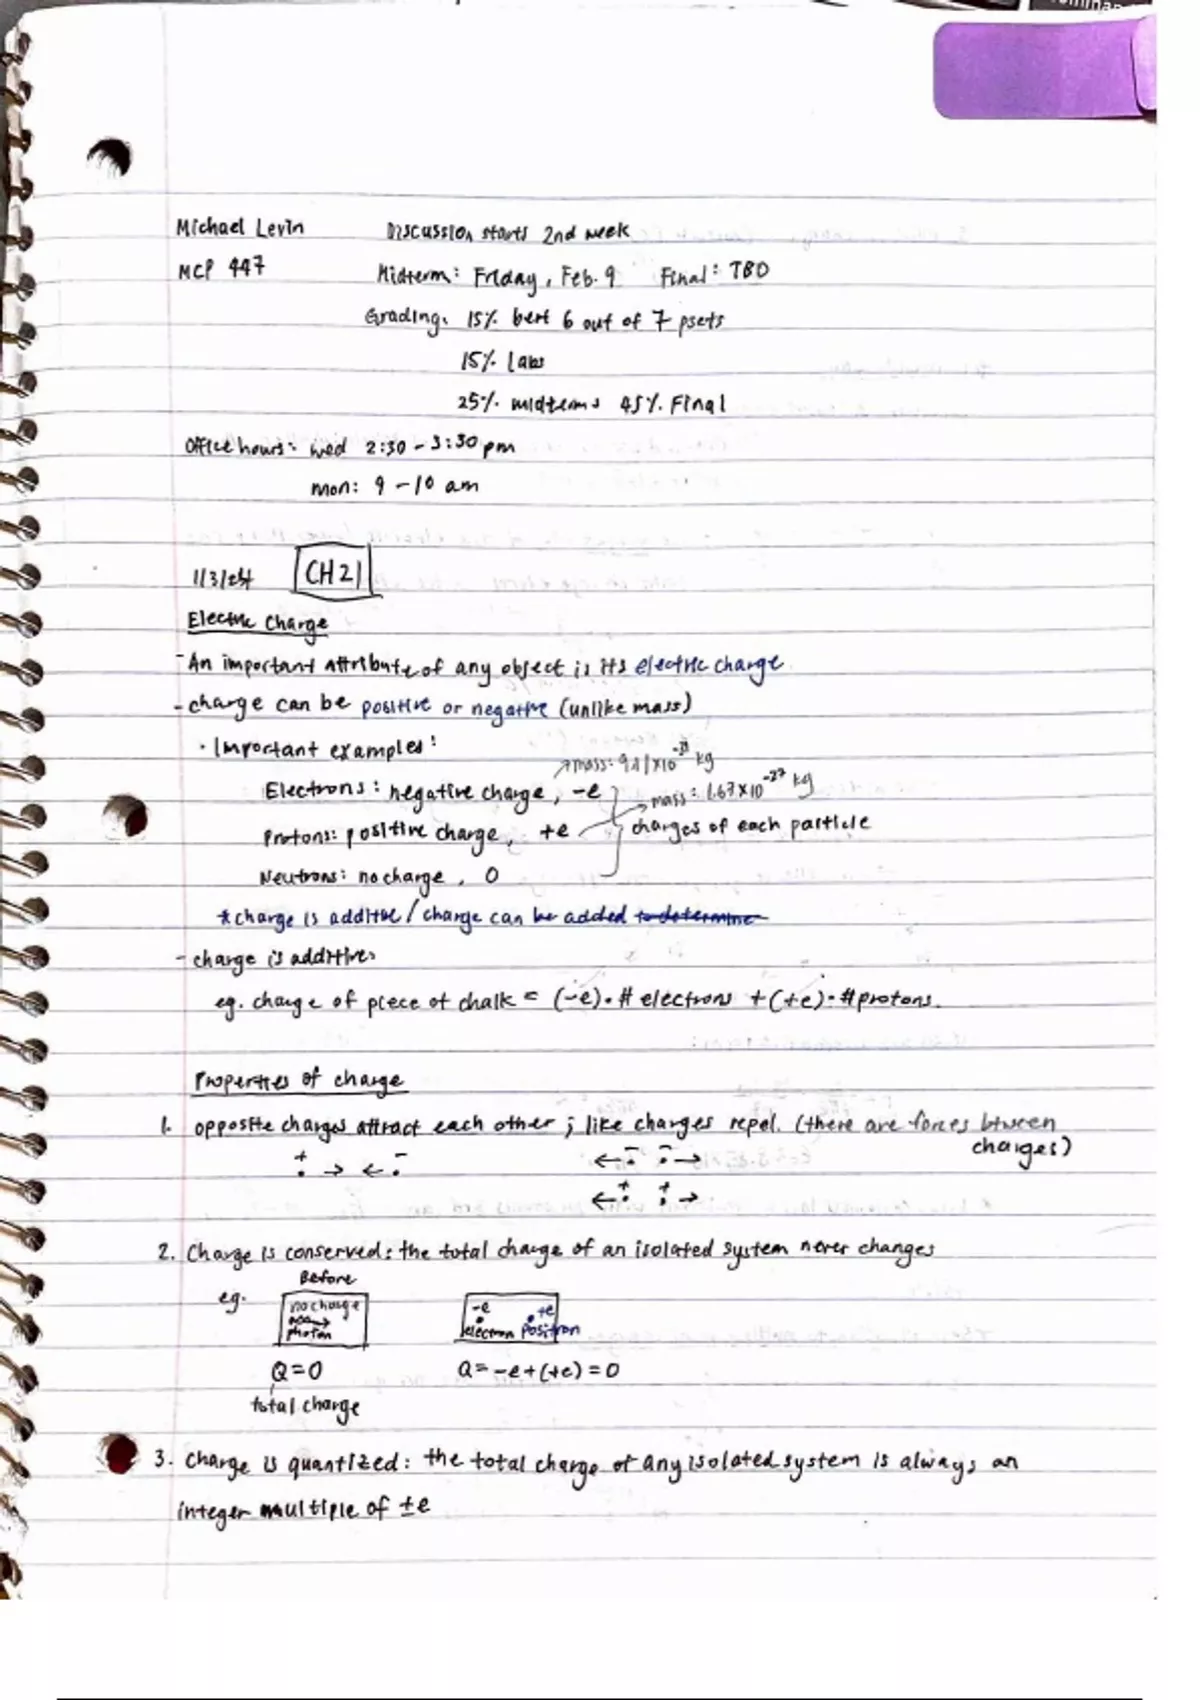 Michael Levin Discussion starts 2nd week
MCP 447 Midterm: Friday, Feb. 9 Final: TBD
Grading: 15% best 6 out of 7 psets
15% labs
25% midterms 45% Final
Office hours: wed 2:30 - 3:30 pm
mon: 9 - 10 am
1/3/24 CH21
Electric Charge
- An important attribute of any object is its electric charge
- charge can be positive or negative (unlike mass)
• Important examples:
mass: 9.11×10⁻³¹ kg
Electrons: negative charge, -e mass: 1.67×10⁻²⁷ kg
Protons: positive charge, +e charges of each particle
Neutrons: no charge, 0
* charge is additive / charge can be added to determine
- charge is additive:
eg. charge of piece of chalk = (-e)·# electrons + (+e)·# protons.
Properties of charge
1. opposite charges attract each other ; like charges repel. (there are forces btween
charges)
+ → ← - ← - - →
← + + →
2. Charge is conserved: the total charge of an isolated system never changes
Before
eg. no charge -e +e
photon electron positron
Q=0 Q= -e+(+e) = 0
total charge
3. Charge is quantized: the total charge of any isolated system is always an
integer multiple of ±e